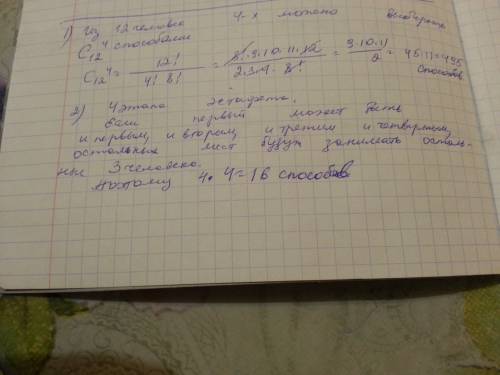 1) Из 12 человек 4-х можно выбирать
C₁₂⁴ способами
C₁₂⁴ = 12! / 4! 8! = 8! · 9 · 10 · 11 · 12 / 2 · 3 · 4 · 8! = 9 · 10 · 11 / 2 = 45 · 11 = 495
способов
2) 4 этапа эстафета.
Если первый может быть
и первым, и вторым, и третим и четвертым,
остальных мест будут занимать осталь-
ные 3 человека.
поэтому 4 · 4 = 16 способов